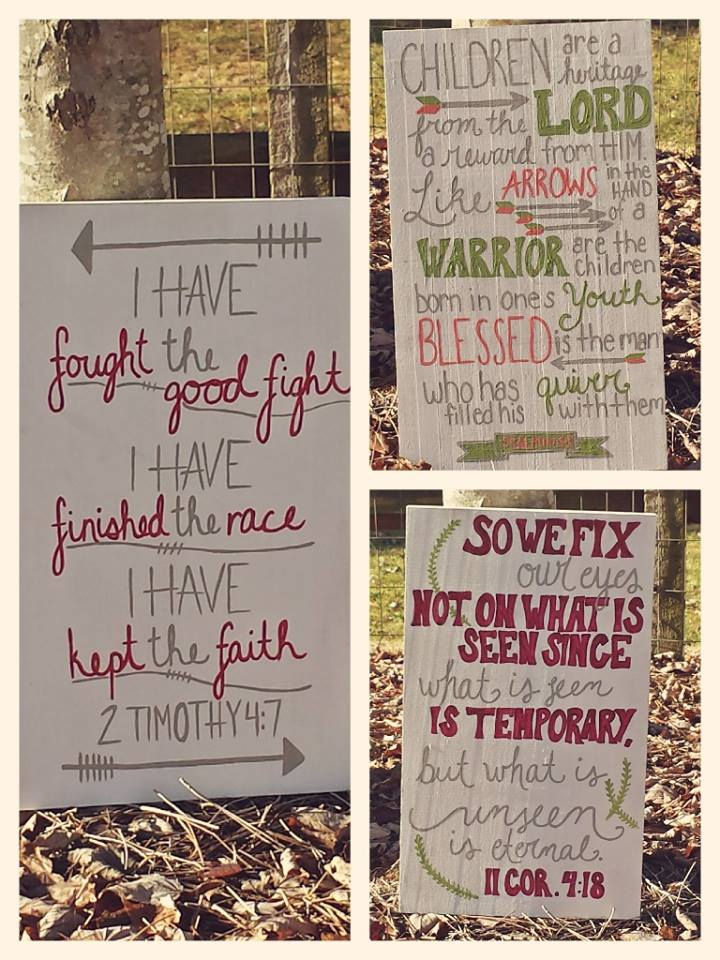 I HAVE
fought the
good fight
I HAVE
finished the race
I HAVE
kept the faith
2 TIMOTHY 4:7
CHILDREN are a
heritage
from the LORD
a reward from HIM.
Like ARROWS in the
HAND
of a
WARRIOR are the
children
born in ones Youth
BLESSED is the man
who has
filled his
quiver
with them
SO WE FIX
our eyes
NOT ON WHAT IS
SEEN SINCE
what is seen
IS TEMPORARY,
but what is
unseen
is eternal.
II COR. 4:18